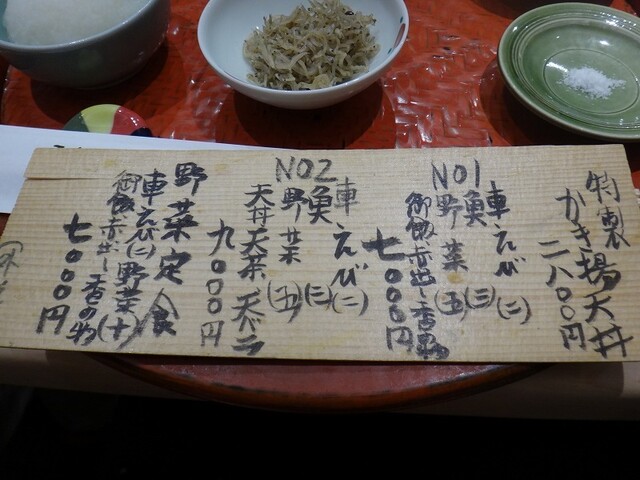 特製
かき揚天丼
二八〇〇円
NO1
車えび(二)
魚(三)
野菜(五)
御飯赤出し香の物
七〇〇〇円
NO2
車えび(二)
魚(三)
野菜(五)
天丼 天茶 天バラ
九〇〇〇円
野菜定食
車えび(二)野菜(十)
御飯赤出し香の物
七〇〇〇円